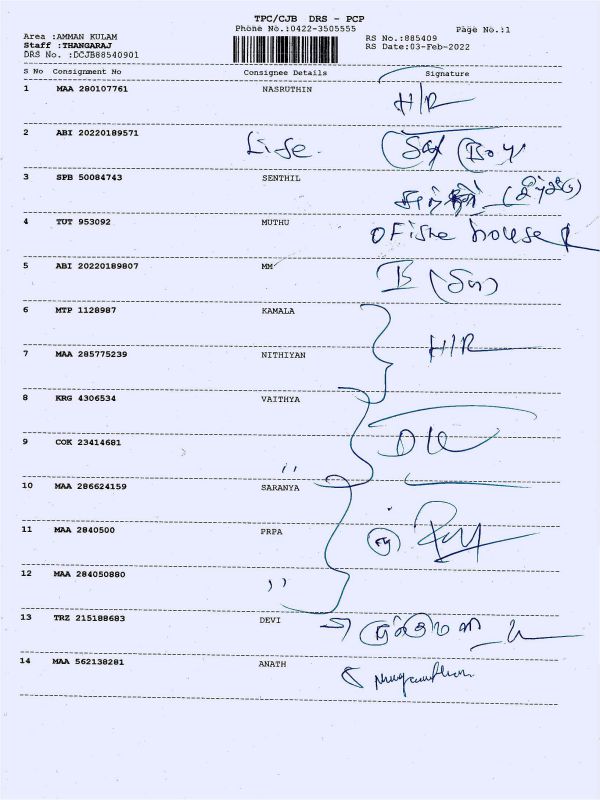 TPC/CJB DRS - PCP
Phone No.:0422-3505555 Page No.:1
Area :AMMAN KULAM RS No.:885409
Staff :THANGARAJ RS Date:03-Feb-2022
DRS No. :DCJB88540901
S No Consignment No Consignee Details Signature
1 MAA 280107761 NASRUTHIN H/R
2 ABI 20220189571 Life. Boy
3 SPB 50084743 SENTHIL
4 TUT 953092 MUTHU house
5 ABI 20220189807 MM B
6 MTP 1128987 KAMALA
7 MAA 285775239 NITHIYAN H/R
8 KRG 4306534 VAITHYA
9 COK 23414681 ,,
10 MAA 286624159 SARANYA
11 MAA 2840500 PRPA
12 MAA 284050880 ,,
13 TRZ 215188683 DEVI
14 MAA 562138281 ANATH